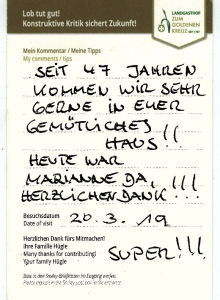 Lob tut gut!
Konstruktive Kritik sichert Zukunft!
LANDGASTHOF
ZUM
GOLDENEN
KREUZ
Mein Kommentar / Meine Tipps
My comments / tips
SEIT 47 JAHREN
KOMMEN WIR SEHR
GERNE IN EUER
GEMÜTLICHES
HAUS!!!
HEUTE WAR
MARIANNE DA, !!!
HERZLICHEN DANK!!!
Besuchsdatum
Date of visit
20.3.19
Herzlichen Dank fürs Mitmachen!
Ihre Familie Hügle
Many thanks for contributing!
Your family Hügle
SUPER!!!